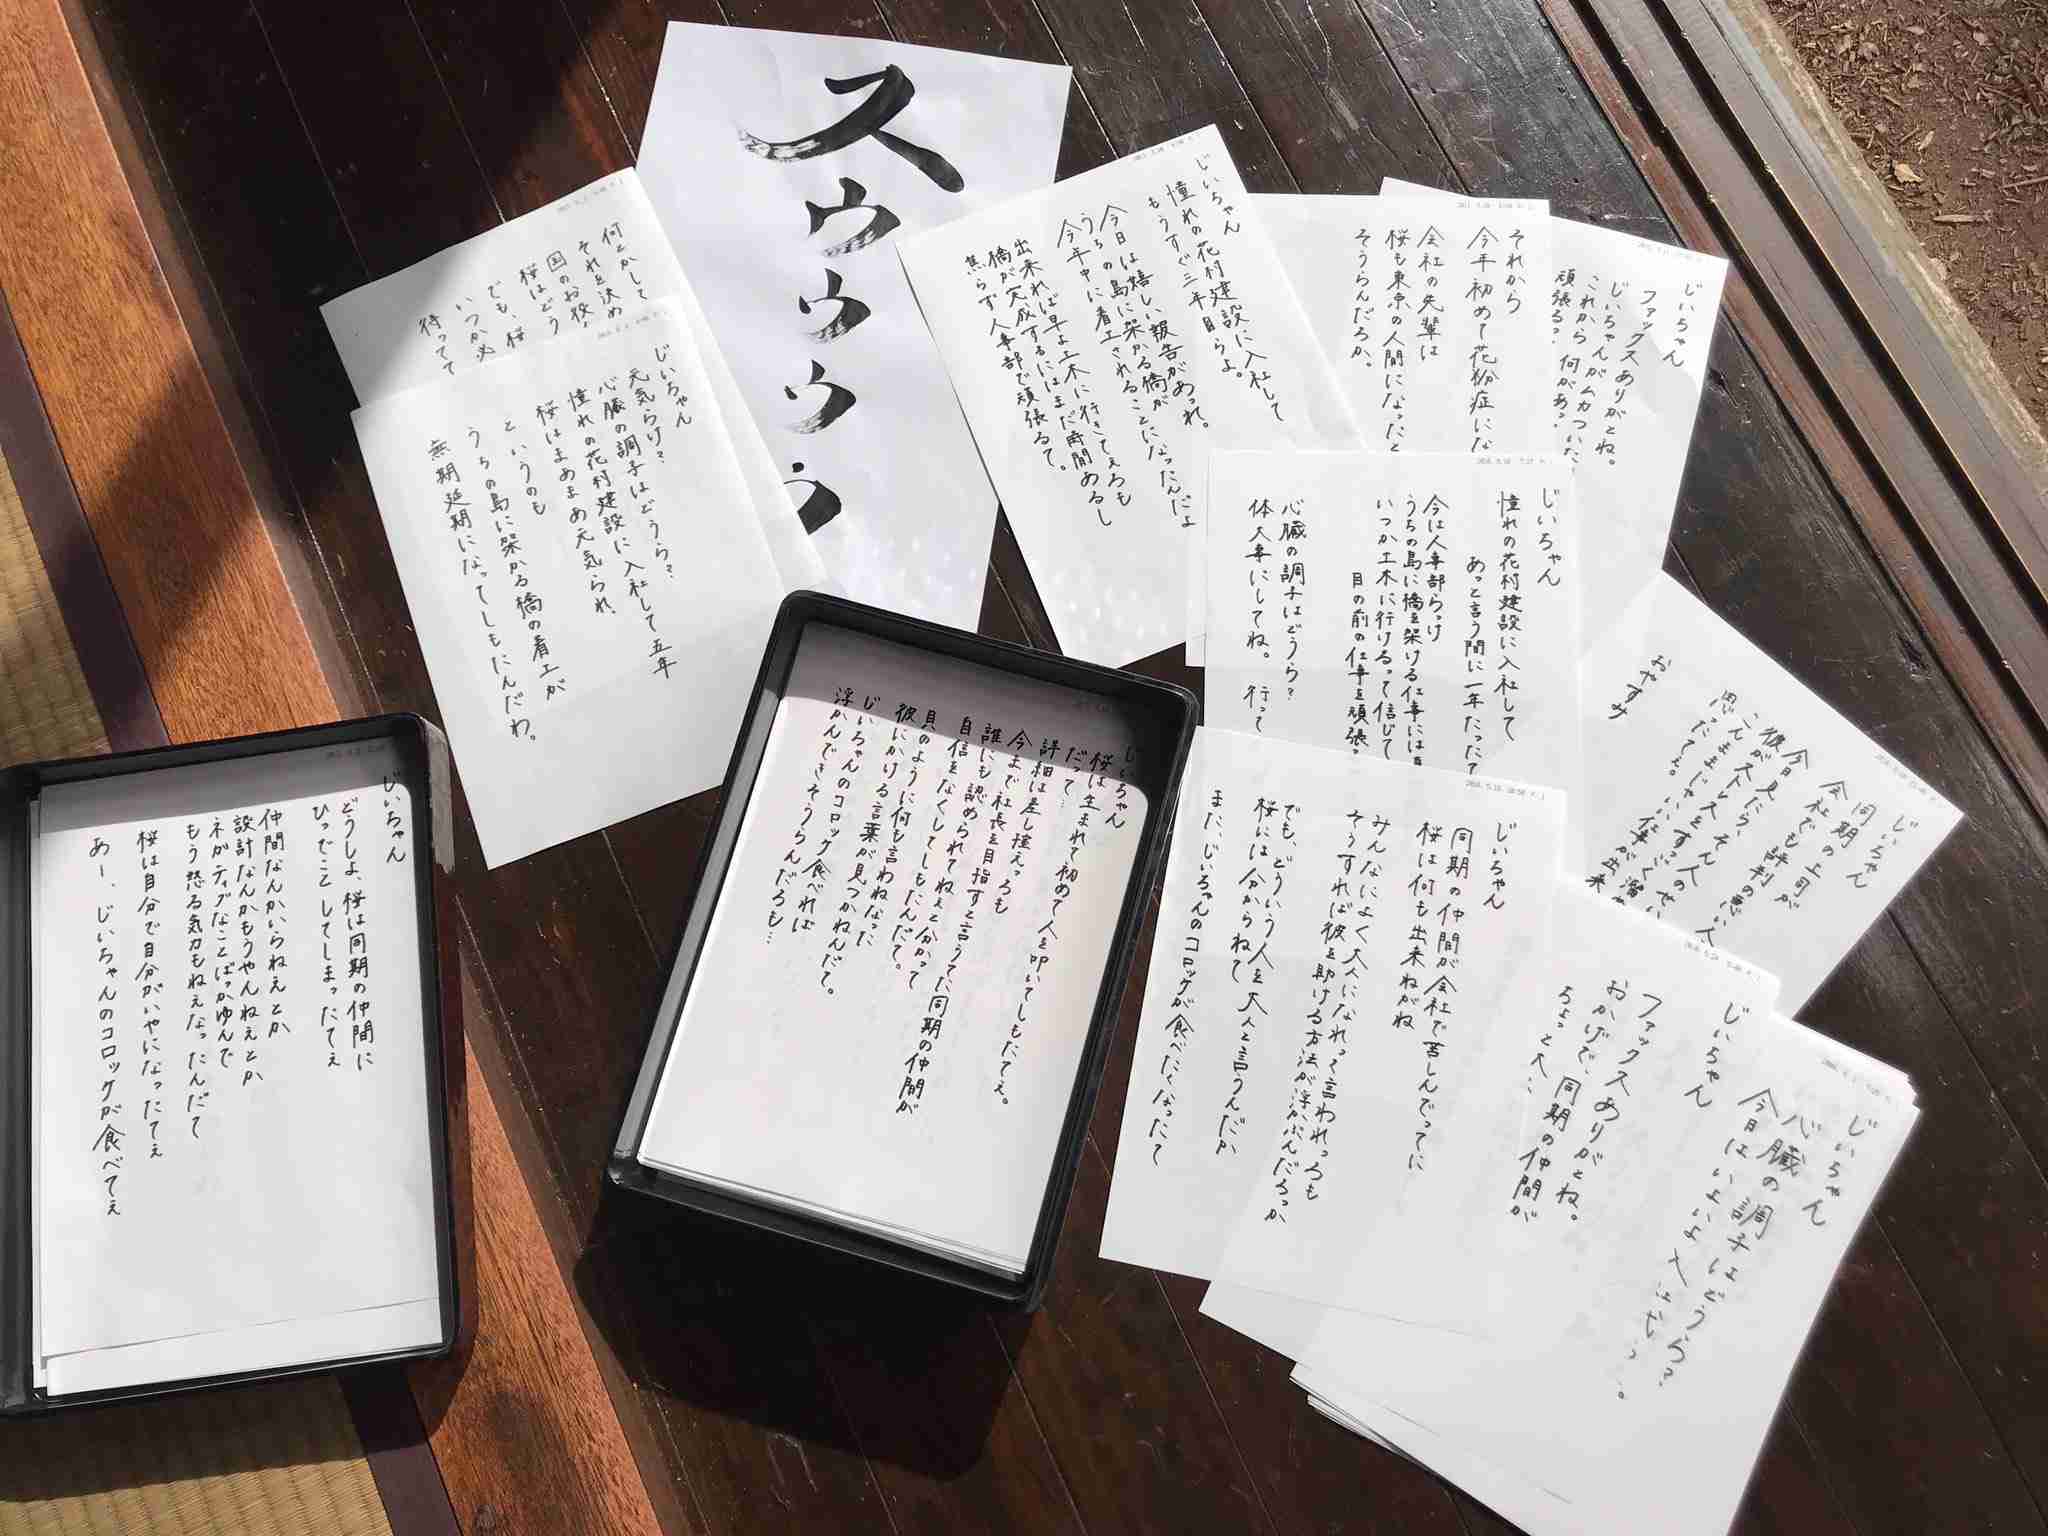 スウゥゥぅ
何とかして
それを決め
国のお役
桜はどう
でも、桜
いつか必
待ってて
じいちゃん
元気らけ？
心臓の調子はどうら？
憧れの花村建設に入社して五年
桜はまあまあ元気られ、
というのも
うちの島に架かる橋の着工が
無期延期になってしもたんだわ。
じいちゃん
憧れの花村建設に入社して
もうすぐ三年目らよ。
今日は嬉しい報告があっれ。
うちの島に架かる橋が
今年中に着工されることになったんだよ
出来れば早よ土木に行きてぇろも
橋が完成するにはまだ時間あるし
焦らず人事部で頑張るて。
それから
今年初めて花粉症にな
会社の先輩は
桜も東京の人間になったと
そうらんだろか。
じいちゃん
ファックスありがとね。
じいちゃんがムカついた
これから何があっ
頑張る
じいちゃん
憧れの花村建設に入社して
あっと言う間に一年たったて
今は人事部らっけ
うちの島に橋を架ける仕事には
いつか土木に行けるって信じて
目の前の仕事を頑張っ
心臓の調子はどうら？
体大事にしてね。行って
じいちゃん
同期の上司が
会社でも評判の悪い人
今日見たら、そん人の
彼がストレスをすっごく
こんままじゃいい仕事が出来
思ったてぇ。
おやすみ
じいちゃん
同期の仲間が会社で苦しんでってに
桜は何も出来ねがね
みんなによく大人になれって言われっろも
そうすれば彼を助ける方法が浮かぶんだろっか
でも、どういう人を大人と言うんだか
桜には分からねて
また、じいちゃんのコロッケが食べたくなったて
じいちゃん
ファックスありがとね。
おかげで、同期の仲間が
ちょっと大
じいちゃん
心臓の調子はどうら？
今日はいよいよ入社
じいちゃん
桜は生まれて初めて人を叩いてしもたてぇ。
だって…
詳細は差し控えっろも
今まで社長を目指すと言うてた同期の仲間が
誰にも認められてねぇと分かって
自信をなくしてしもたんだて。
貝のように何も言わねなった
彼にかける言葉が見つかねんだて。
じいちゃんのコロッケ食べれば
浮かんできそうらんだろも…
じいちゃん
どうしよ、桜は同期の仲間に
ひっでことしてしまったてぇ
仲間なんかいらねぇとか
設計なんかもうやんねぇとか
ネガティブなことばっかゆんで
もう怒る気力もねぇなったんだて
桜は自分で自分がいやになったてぇ
あー、じいちゃんのコロッケが食べてぇ